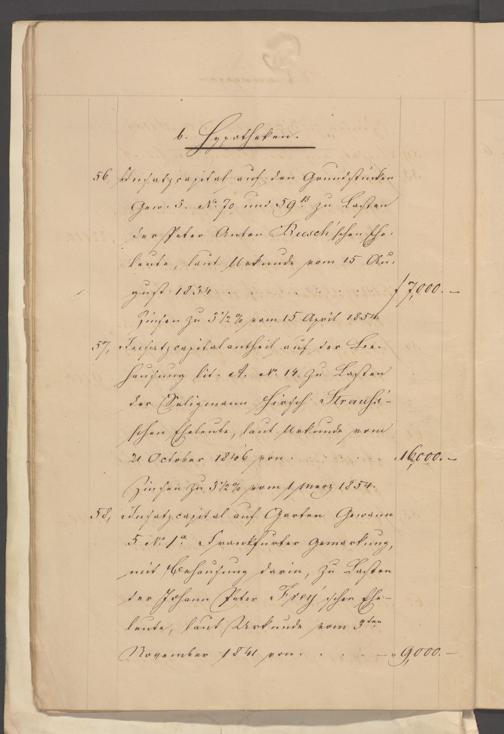 b. Hypotheken.
56, Insatzcapital auf den Grundstücken
Gew. 5. No. 70 und 59 B zu Lasten
der Peter Anton Busch'schen Ehe-
leute, laut Urkunde vom 15 Au-
gust 1834 . . . f 7,000. –
Zinsen zu 3 1/2 % vom 15 April 1854.
57, Insatzcapitalantheil auf der Be-
hausung lit. A. No. 14. zu Lasten
der Seligmann Hirsch Strauß-
schen Eheleute, laut Urkunde vom
21 October 1846 von . . . 16,000. –
Zinsen zu 3 1/2 % vom 1 Merz 1854.
58, Insatzcapital auf Garten Gewann
5 No. 1 a Frankfurter Gemarkung,
mit Behausung darin, zu Lasten
der Johann Peter Frey'schen Ehe-
leute, laut Urkunde vom 3ten
November 1841 von . . . . – „ 9,000. –